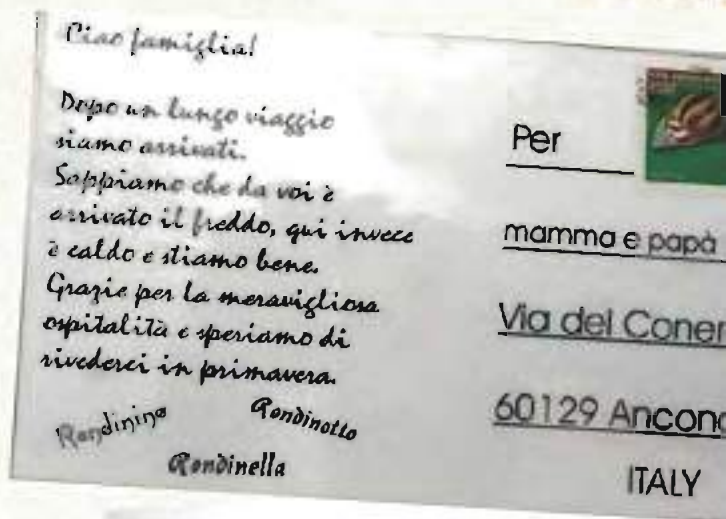 Ciao famiglia!
Dopo un lungo viaggio
siamo arrivati.
Sappiamo che da voi è
arrivato il freddo, qui invece
è caldo e stiamo bene.
Grazie per la meravigliosa
ospitalità e speriamo di
rivederci in primavera.
Rondinino
Rondinotto
Rondinella
Per
mamma e papà
Via del Coner
60129 Ancona
ITALY